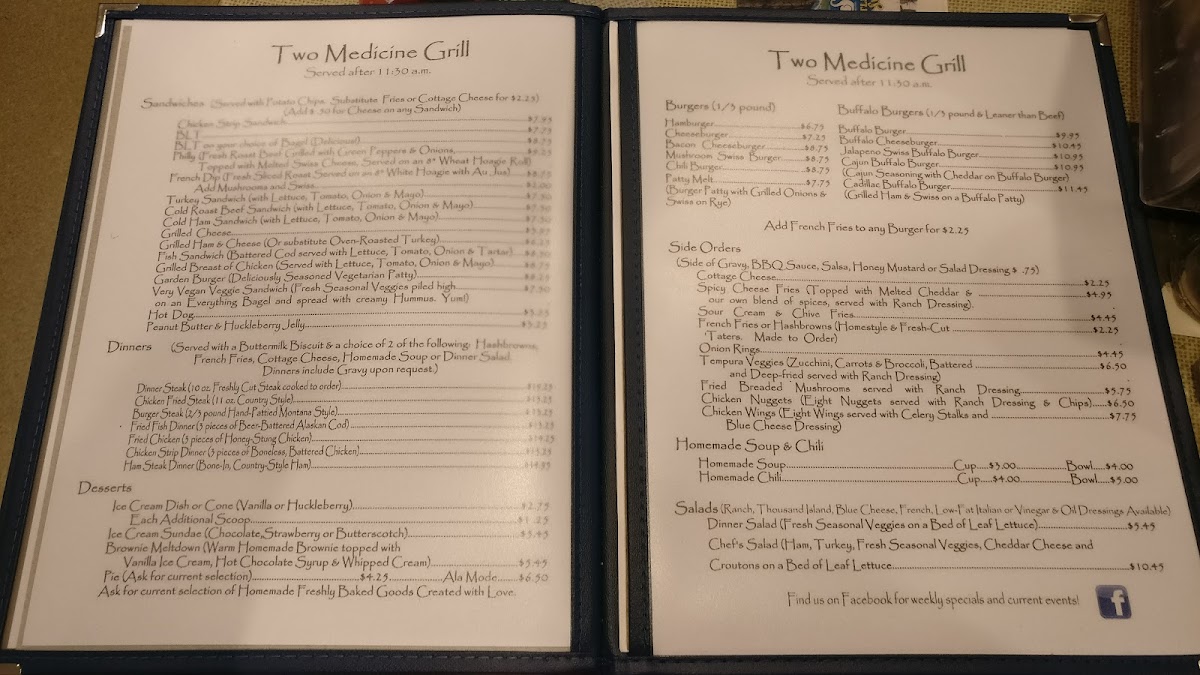 Two Medicine Grill
Served after 11:30 a.m.
Sandwiches (Served with Potato Chips. Substitute Fries or Cottage Cheese for $2.25)
(Add $.50 for Cheese on any Sandwich)
Chicken Strip Sandwich $7.95
BLT $7.75
BLT on your choice of Bagel (Delicious!) $8.75
Philly (Fresh Roast Beef Grilled with Green Peppers & Onions, $9.25
Topped with Melted Swiss Cheese, Served on an 8" Wheat Hoagie Roll)
French Dip (Fresh Sliced Roast Served on an 8" White Hoagie with Au Jus) $8.75
Add Mushrooms and Swiss $2.00
Turkey Sandwich (with Lettuce, Tomato, Onion & Mayo) $7.50
Cold Roast Beef Sandwich (with Lettuce, Tomato, Onion & Mayo) $7.50
Cold Ham Sandwich (with Lettuce, Tomato, Onion & Mayo) $7.50
Grilled Cheese
Grilled Ham & Cheese (Or substitute Oven-Roasted Turkey)
Fish Sandwich (Battered Cod served with Lettuce, Tomato, Onion & Tartar)
Grilled Breast of Chicken (Served with Lettuce, Tomato, Onion & Mayo) $8.75
Garden Burger (Deliciously Seasoned Vegetarian Patty) $8.25
Very Vegan Veggie Sandwich (Fresh Seasonal Veggies piled high $7.50
on an Everything Bagel and spread with creamy Hummus. Yum!)
Hot Dog $5.25
Peanut Butter & Huckleberry Jelly $5.25
Dinners (Served with a Buttermilk Biscuit & a choice of 2 of the following: Hashbrowns,
French Fries, Cottage Cheese, Homemade Soup or Dinner Salad.
Dinners include Gravy upon request.)
Dinner Steak (10 oz. Freshly Cut Steak cooked to order)
Chicken Fried Steak (11 oz. Country Style)
Burger Steak (2/3 pound Hand-Pattied Montana Style)
Fried Fish Dinner (3 pieces of Beer-Battered Alaskan Cod)
Fried Chicken (3 pieces of Honey-Stung Chicken)
Chicken Strip Dinner (3 pieces of Boneless, Battered Chicken)
Ham Steak Dinner (Bone-In, Country-Style Ham)
Desserts
Ice Cream Dish or Cone (Vanilla or Huckleberry) $2.75
Each Additional Scoop $1.25
Ice Cream Sundae (Chocolate, Strawberry or Butterscotch) $5.45
Brownie Meltdown (Warm Homemade Brownie topped with
Vanilla Ice Cream, Hot Chocolate Syrup & Whipped Cream) $5.45
Pie (Ask for current selection) $4.25 Ala Mode $6.50
Ask for current selection of Homemade Freshly Baked Goods Created with Love.
Two Medicine Grill
Served after 11:30 a.m.
Burgers (1/3 pound)
Hamburger $6.75
Cheeseburger $7.25
Bacon Cheeseburger $8.75
Mushroom Swiss Burger $8.75
Chili Burger $8.75
Patty Melt $7.75
(Burger Patty with Grilled Onions &
Swiss on Rye)
Buffalo Burgers (1/3 pound & Leaner than Beef)
Buffalo Burger $9.95
Buffalo Cheeseburger $10.45
Jalapeno Swiss Buffalo Burger $10.95
Cajun Buffalo Burger $10.95
(Cajun Seasoning with Cheddar on Buffalo Burger)
Cadillac Buffalo Burger $11.45
(Grilled Ham & Swiss on a Buffalo Patty)
Add French Fries to any Burger for $2.25
Side Orders
(Side of Gravy, BBQ Sauce, Salsa, Honey Mustard or Salad Dressing $ .75)
Cottage Cheese $2.25
Spicy Cheese Fries (Topped with Melted Cheddar & $4.95
our own blend of spices, served with Ranch Dressing).
Sour Cream & Chive Fries $4.45
French Fries or Hashbrowns (Homestyle & Fresh-Cut $2.25
'Taters. Made to Order)
Onion Rings $4.45
Tempura Veggies (Zucchini, Carrots & Broccoli, Battered $6.50
and Deep-fried served with Ranch Dressing)
Fried Breaded Mushrooms served with Ranch Dressing $5.75
Chicken Nuggets (Eight Nuggets served with Ranch Dressing & Chips) $6.50
Chicken Wings (Eight Wings served with Celery Stalks and $7.75
Blue Cheese Dressing)
Homemade Soup & Chili
Homemade Soup Cup $3.00 Bowl $4.00
Homemade Chili Cup $4.00 Bowl $5.00
Salads (Ranch, Thousand Island, Blue Cheese, French, Low-Fat Italian or Vinegar & Oil Dressings Available)
Dinner Salad (Fresh Seasonal Veggies on a Bed of Leaf Lettuce) $5.45
Chef's Salad (Ham, Turkey, Fresh Seasonal Veggies, Cheddar Cheese and
Croutons on a Bed of Leaf Lettuce $10.45
Find us on Facebook for weekly specials and current events!
f